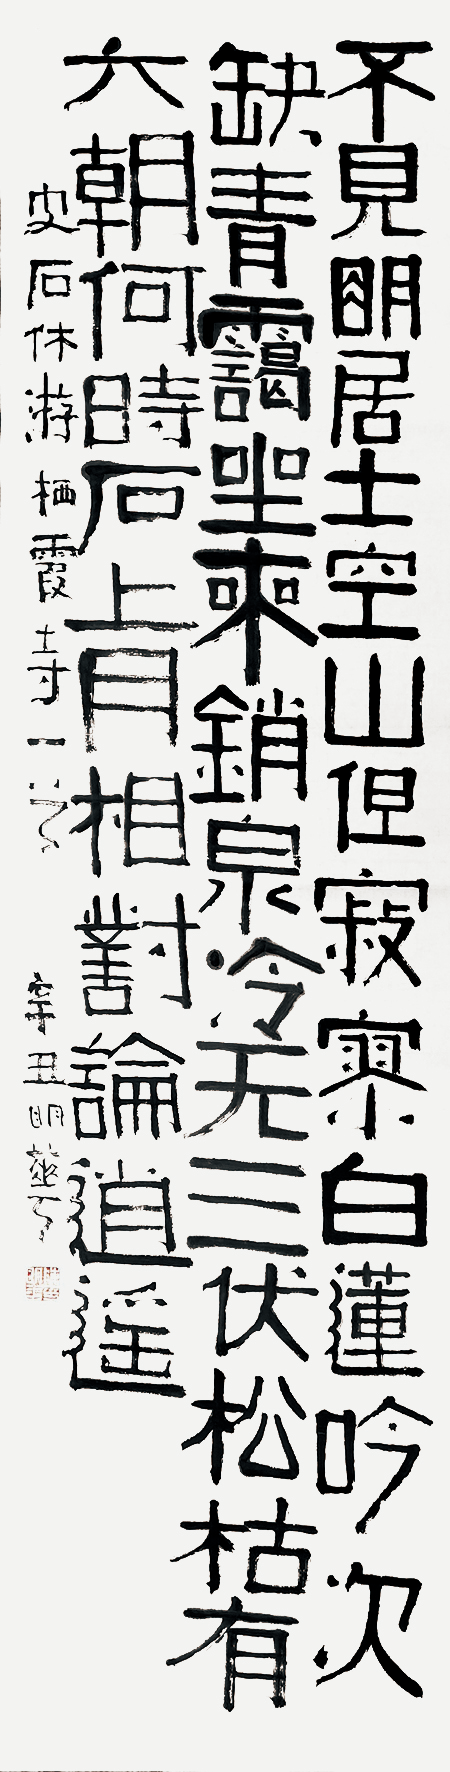 不見明居士空山但寂寥白蓮吟次
缺青靄坐來銷泉冷无三伏松枯有
六朝何時石上月相對論逍遥
史石休游栖霞寺一首
辛丑明